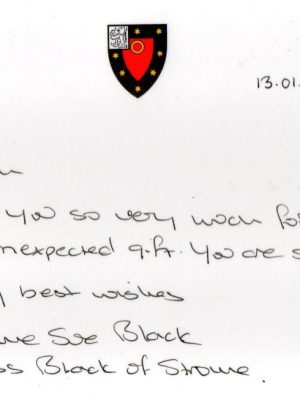 13.01.
you so very much for
nexpected gift. You are s
best wishes
me Sue Black
ss Black of Strome.